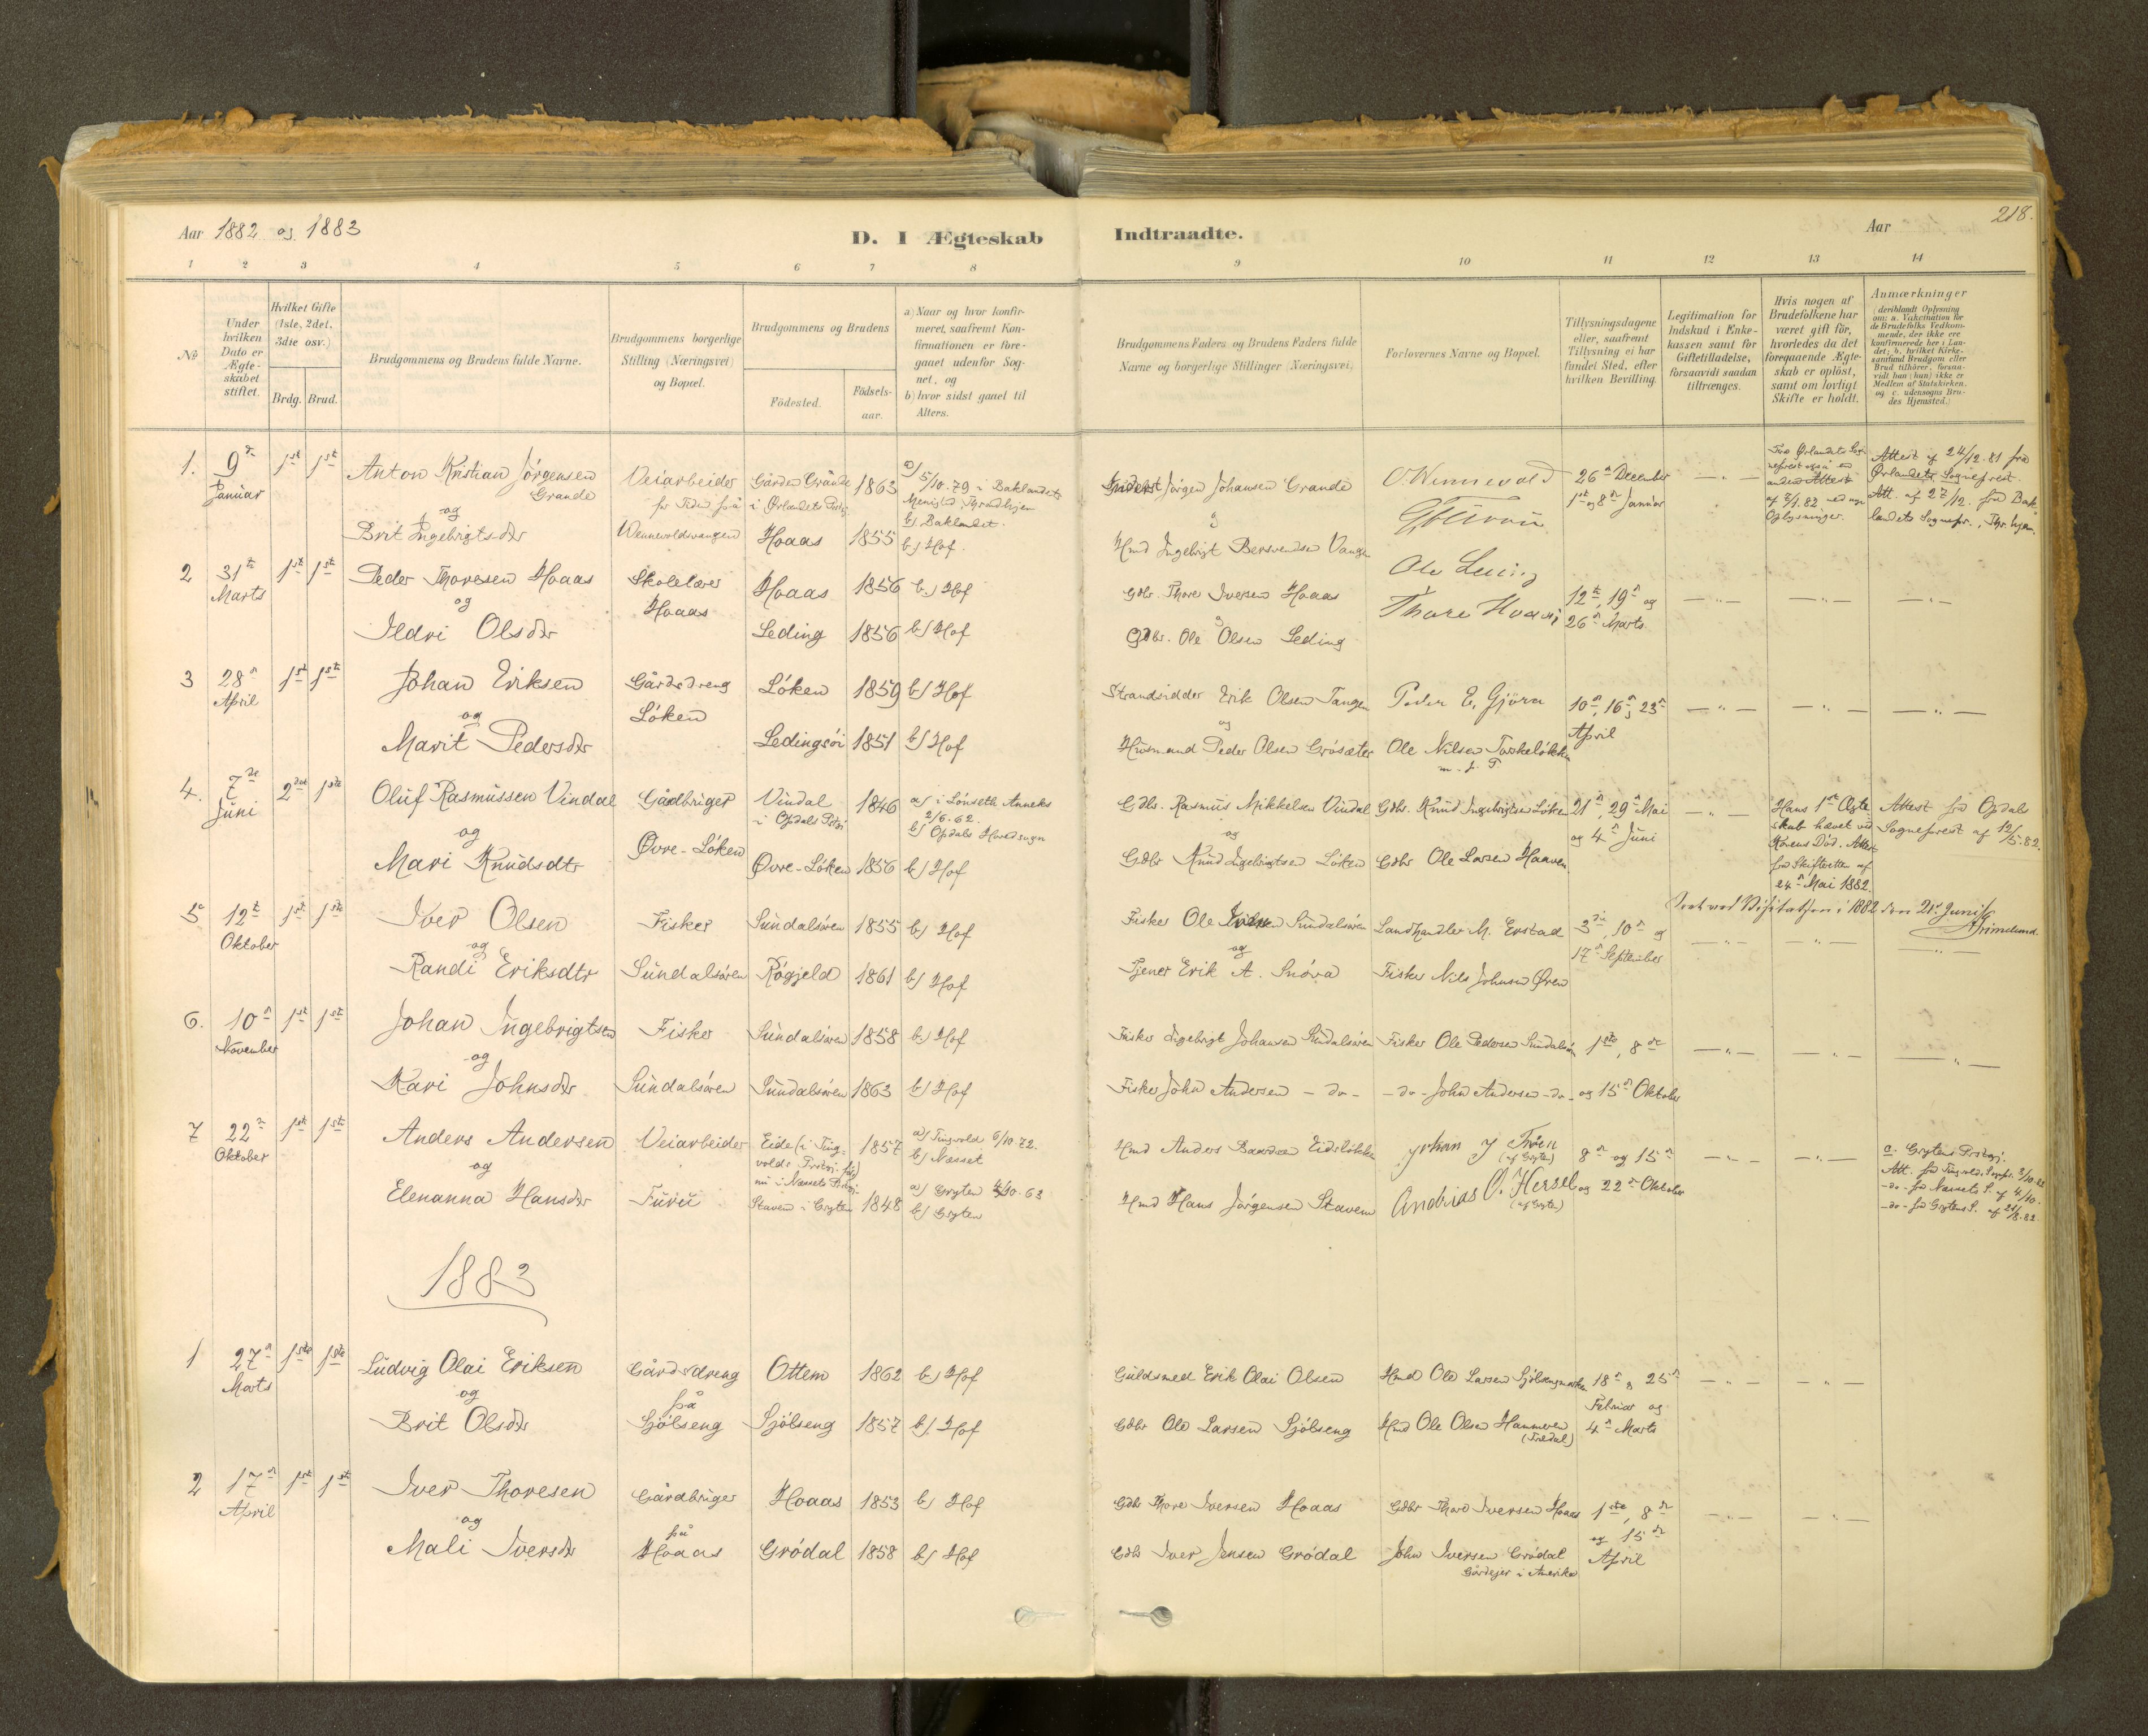 Aar 1882 og 1883
D. I Ægteskab
Indtraadte.
Aar
218.
1 2 3 4 5 6 7 8
9 10 11 12 13 14
No
Under hvilken Dato er Ægteskabet stiftet.
Hvilket Gifte (1ste, 2det, 3die osv.)
Brdg. Brud.
Brudgommens og Brudens fulde Navne.
Brudgommens borgerlige Stilling (Næringsvei) og Bopæl.
Brudgommens og Brudens
Födested.
Födselsaar.
a) Naar og hvor konfirmeret, saafremt Konfirmationen er foregaaet udenfor Sognet, og
b) hvor sidst gaaet til Alters.
Brudgommens Faders og Brudens Faders fulde Navne og borgerlige Stillinger (Næringsvei)
Forlovernes Navne og Bopæl.
Tillysningsdagene eller, saafremt Tillysning ei har fundet Sted, efter hvilken Bevilling.
Legitimation for Indskud i Enkekassen samt for Giftetilladelse, forsaavidt saadan tiltrænges.
Hvis nogen af Brudefolkene har været gift för, hvorledes da det foregaaende Ægteskab er oplöst, samt om lovligt Skifte er holdt.
Anmærkninger
(deriblandt Oplysning om: a. Vakcination for de Brudefolks Vedkommende, der ikke ere konfirmerede her i Landet; b. hvilket Kirkesamfund Brudgom eller Brud tilhörer, forsaavidt han (hun) ikke er Medlem af Statskirken, og c. udensogns Brudes Hjemsted.)
1. 9de Januar 1ste 1ste
Anton Kristian Jörgensen Grande
og
Brit Ingebrigtsdtr
Veiarbeider for Tiden på Wennevoldsvangen
Gården Grande i Ørlandets Prstgj. 1863
a) 5/10.79 i Baklandets Menighed, Throndhjem
b) Baklandet.
Hoaas 1855 b) Hof.
Inderst Jörgen Johansen Grande
og
Hmd Ingebrigt Bersvendsen Vangen
O. Wennevold
26de December 1ste og 8de Januar
Fra Ørlandets Sognepræst også en anden Attest af 7/1.82 med nye Oplysninger.
Attest af 24/12.81 fra Ørlandets Sognepræst.
Att. af 27/12. fra Baklandets Sognepr., Thr.hjem.
2 31te Marts 1ste 1ste
Peder Thoresen Hoaas
og
Ildri Olsdtr
Skolelærer Hoaas
Hoaas 1856 b) Hof
Leding 1856 b) Hof
Gdbr. Thore Iversen Hoaas
og
Gdbr. Ole Olsen Leding
Ole Leding
Thore Hoaas
12te, 19de og 26de Marts.
3 28de April 1ste 1ste
Johan Eriksen
og
Marit Pedersdtr
Gårdsdreng Löken
Löken 1859 b) Hof
Ledingsöi 1851 b) Hof
Strandsidder Erik Olsen Tangen
og
Husmand Peder Olsen Grösæter
Peder E. Gjöra
Ole Nilsen Torskelökken
m. f. P.
10de, 16de, 23de April
4. 7de Juni 2det 1ste
Oluf Rasmussen Vindal
og
Mari Knudsdtr
Gårdbruger Övre-Löken
Vindal i Opdals Prstgj. 1846
a) i Lönseth Anneks 2/6.62.
b) Opdals Hovedsogn
Övre-Löken 1856 b) Hof
Gdbr. Rasmus Mikkelsen Vindal
og
Gdbr Knud Ingebrigtsen Löken
Gdbr. Knud Ingebrigtsen Löken
Gdbr Ole Larsen Haaven
21de, 29de Mai og 4de Juni
Hans 1ste Ægteskab hævet ved Konens Död. Attest fra Skifteretten af 24de Mai 1882.
Attest fra Opdals Sognepræst af 12/5.82.
Seet ved Visitatsen i 1882 den 21de Juni
Grimelund.
5. 12te Oktober 1ste 1ste
Iver Olsen
og
Randi Eriksdtr
Fisker Sundalsören
Sundalsören 1855 b) Hof
Rögjeld 1861 b) Hof
Fisker Ole Iversen Sundalsören
og
Tjener Erik A. Snöva
Landhandler M. Erstad
Fisker Nils Johnsen Ören
3die, 10de og 17de September
6. 10de November 1ste 1ste
Johan Ingebrigtsen
og
Kari Johnsdtr
Fisker Sundalsören
Sundalsören 1858 b) Hof
Sundalsören 1863 b) Hof
Fisker Ingebrigt Johansen Sundalsören
Fisker John Andersen - do -
Fisker Ole Pedersen Sundalsören
- do - John Andersen - do -
1ste, 8de og 15de Oktober
7 22de Oktober 1ste 1ste
Anders Andersen
og
Elenanna Hansdtr
Veiarbeider Furu
Eide (i Tingvolds Prstgj. för) nu i Næssets Prstgj. 1857
a) Tingvold 6/10 72.
b) Næsset
Staven i Gryten 1848
a) Gryten 4/10.63
b) Gryten
Hmd Anders Baardsen Eidslökken
Hmd Hans Jörgensen Stavem
Johan J Troen
(af Gryten)
Andrias O. Hersel
(af Gryten)
8de og 15de og 22de Oktober
c. Grytens Prstegj.
Att. fra Tingvolds Sognpr. 3/10 82
- do - fra Næssets S. af 4/10.
- do - fra Grytens S. af 21/8.82.
1883
1 27de Marts 1ste 1ste
Ludvig Olai Eriksen
og
Brit Olsdtr
Gårdsdreng på Sjölseng
Ottem 1862 b) Hof
Sjölseng 1857 b) Hof
Guldsmed Erik Olai Olsen
Gdbr Ole Larsen Sjölseng
Hmd Ole Larsen Sjölsengmarken
Hmd Ole Olsen Hammeren
(Tredal)
18de & 25de Februar og 4de Marts
2 17de April 1ste 1ste
Iver Thoresen
og
Mali Iversdtr
Gårdbruger på Hoaas
Hoaas 1853 b) Hof
Grödal 1858 b) Hof
Gdbr Thore Iversen Hoaas
Gdbr Iver Jensen Grödal
Gdbr Thore Iversen Hoaas
John Iversen Grödal
Gårdejer i Amerika
1ste, 8de og 15de April